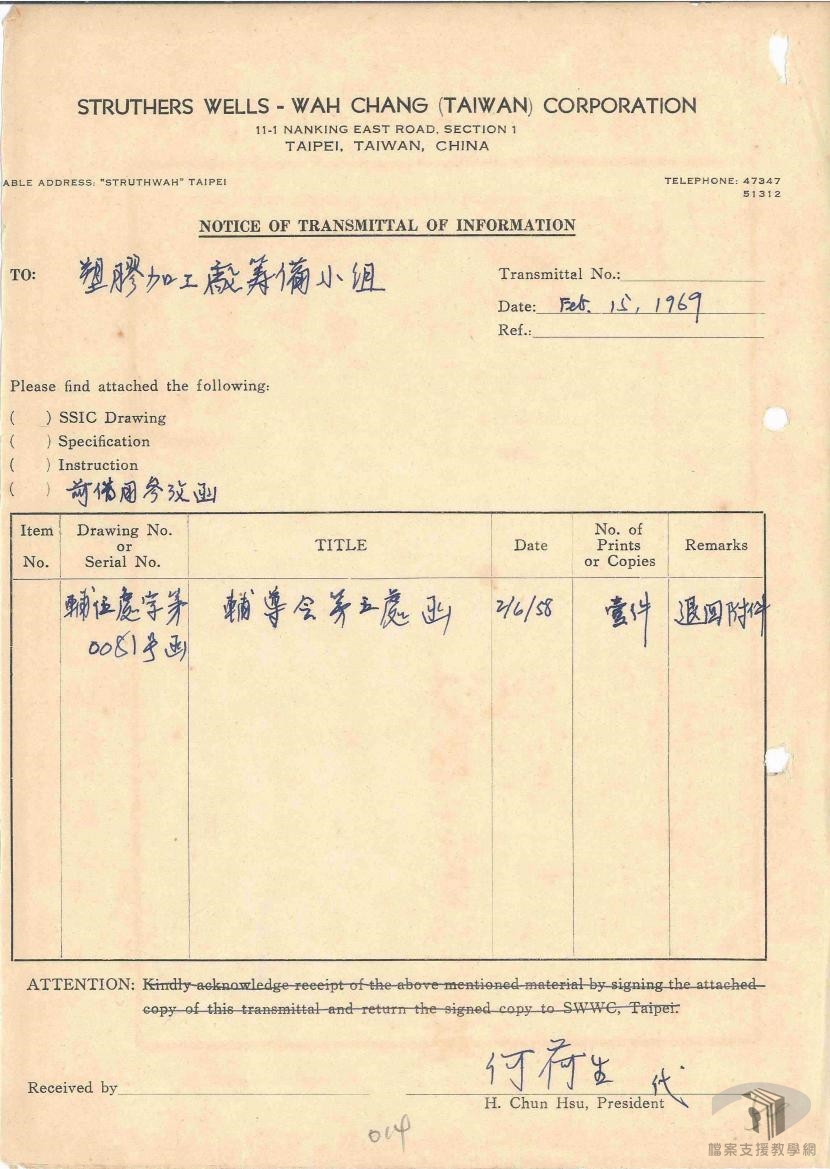 STRUTHERS WELLS - WAH CHANG (TAIWAN) CORPORATION
11-1 NANKING EAST ROAD, SECTION 1
TAIPEI, TAIWAN, CHINA
ABLE ADDRESS: "STRUTHWAH" TAIPEI
TELEPHONE: 47347
51312
NOTICE OF TRANSMITTAL OF INFORMATION
TO: 塑膠加工廠筹備小组
Transmittal No.:
Date: Feb. 15, 1969
Ref.:
Please find attached the following:
( ) SSIC Drawing
( ) Specification
( ) Instruction
( ) 前借用參攷函
Item No.
Drawing No. or Serial No.
TITLE
Date
No. of Prints or Copies
Remarks
輔伍處字第 0081号函
輔導会第五處函
2/6/58
壹件
退回附件
ATTENTION: Kindly acknowledge receipt of the above mentioned material by signing the attached
copy of this transmittal and return the signed copy to SWWC, Taipei.
何荷生 代
Received by
H. Chun Hsu, President
014
檔案支援教學網